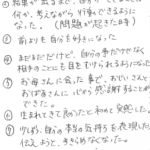 ② 結果が出るまで、自分で
何か、考えながら行動できるように
なった。(問題が起きた時)
③ 前よりも自分を好きになった。
④ まだまだだけど、自分の事だけでなく
相手のことにも目をむけられるようになった
⑤ お母さんに会った事で、おじいさんと
おばあさんに心から感謝することが
できた。
⑥ 生まれてきて良かったと初めて実感した。
⑦ 少しずつ、自分の本当の気持ちを表現したり、
伝えようと、きどらなくなった。